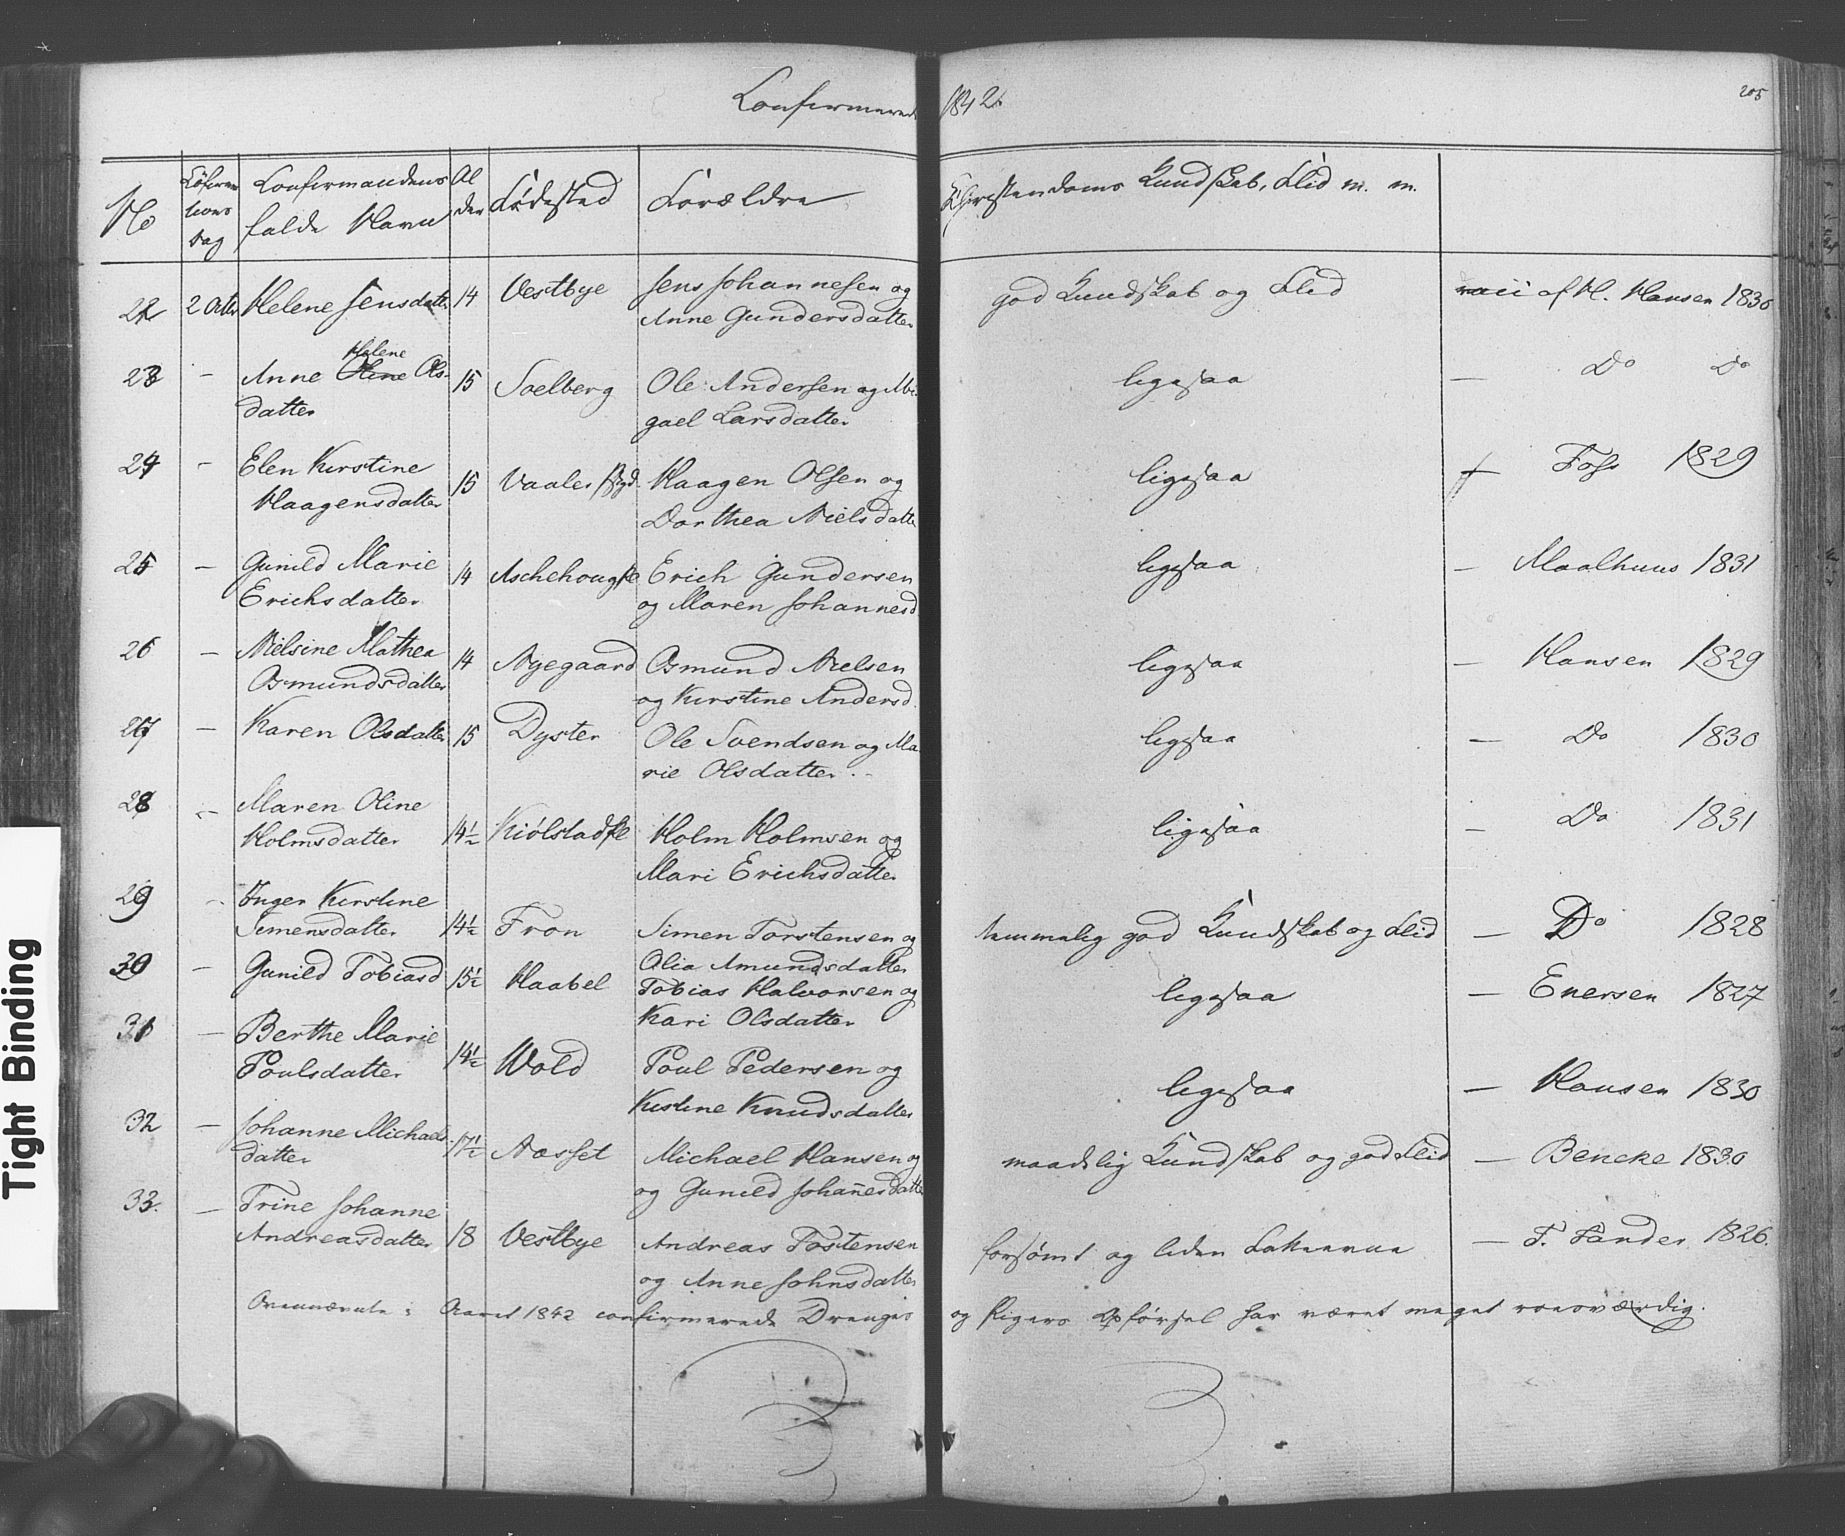 Confirmerede 1842. 205
No Confirmations Dag Confirmandens fulde Navn Alder Fødested Forældre Christendoms Kundskab, Flid m. m.
22 2 Octbr Helene Jensdatter 14 Vestbye Jens Johannesen og god Kundskab og Flid vacc af H. Hansen 1830
Anne Gundersdatter
23 - Anne Oline Helene Ols- 15 Soelberg Ole Andersen og Abi- ligesaa - Do Do
datter gael Larsdatter
24 - Elen Kirstine 15 Vaaler Bygd Haagen Olsen og ligesaa Foss 1829
Haagensdatter Dorthea Nielsdatte
25 - Gunild Marie 14 Aschehougfie Erich Gundersen ligesaa - Maalhuus 1831
Erichsdatter og Maren Johannesd
26 - Nielsine Mathea 14 Nyegaard Osmund Nielsen ligesaa - Hansen 1829
Osmundsdatter og Kirstine Andersd.
27 - Karen Olsdatter 15 Dyster Ole Svendsen og Ma- ligesaa - Do 1830
rie Olsdatter.
28 - Maren Oline
Holmsdatter 14½ Kiølstadfie Holm Holmsen og ligesaa - Do 1831
Mari Erichsdatter
29 - Inger Kirstine
Simensdatter 14½ Fron Simen Torstensen og temmelig god Kundskab og Flid - Do 1828
Olia Amundsdatter
30 - Gunild Tobiasd 15½ Haabel Tobias Halvorsen og ligesaa - Enersen 1827
Kari Olsdatter
31 - Berthe Marie
Poulsdatter 14½ Wold Poul Pedersen og ligesaa - Hansen 1830
Kistine Knudsdatter
32 - Johanne Michaels-
datter 17½ Aasset Michael Hansen og maadelig Kundskab og god Flid - Bencke 1830
og Gunild Johan̄esdatte
33. - Trine Johanne
Andreasdatter 18 Vestbye Andreas Tostensen forsømt og liden Fatteevne - F. Sander 1826.
og Anne Johnsdatter
Ovennævnte i Aaret 1842 confirmerede Drenges og Pigers Opførsel har været meget roesværdig.
Tight Binding